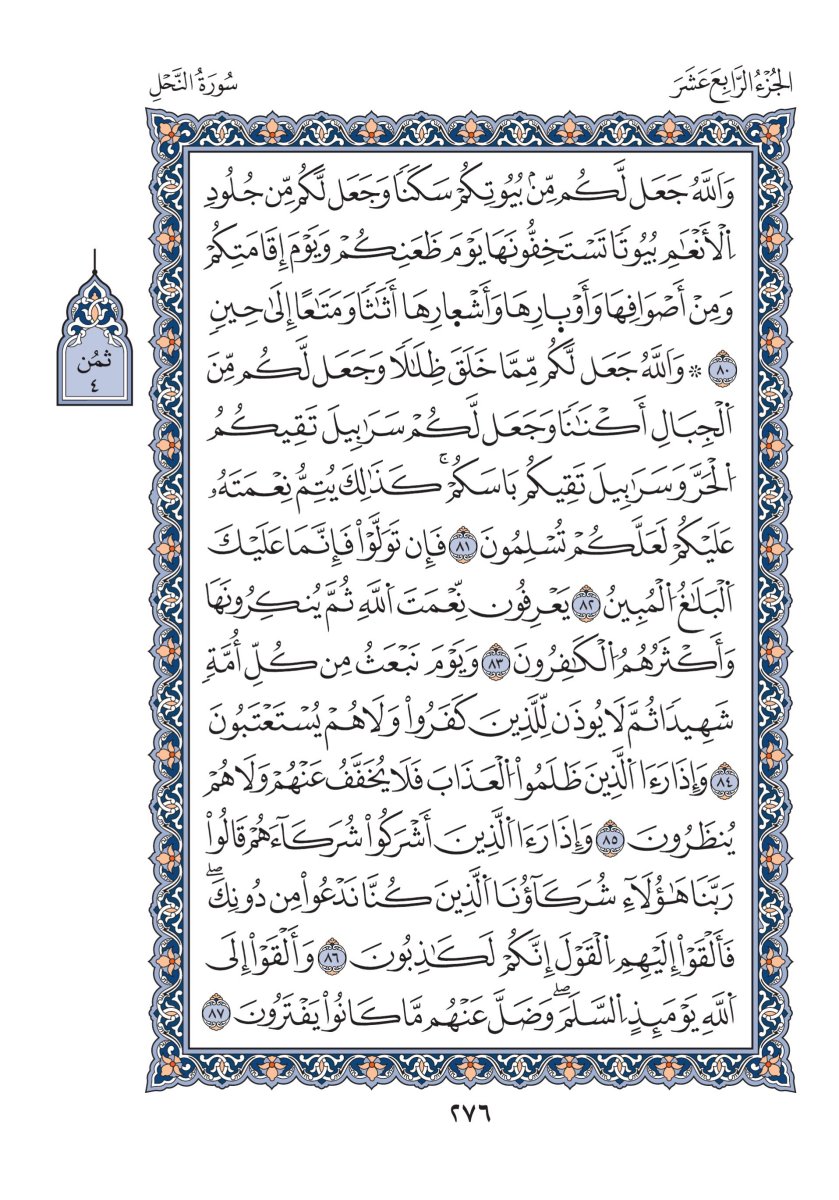 الجُزْءُ الرَّابِعَ عَشَرَ
سُورَةُ النَّحْلِ
وَاللَّهُ جَعَل لَّكُم مِّنۢ بُيُوتِكُمْ سَكَنٗا وَجَعَل لَّكُم مِّن جُلُودِ
اِ۬لْأَنْعَٰمِ بُيُوتٗا تَسْتَخِفُّونَهَا يَوْمَ ظَعَنِكُمْ وَيَوْمَ إِقَامَتِكُمْ
وَمِنْ أَصْوَافِهَا وَأَوْبٰ۪رِهَا وَأَشْعٰ۪رِهَا أَثَٰثٗا وَمَتَٰعًا إِلَىٰ حِينٖ
٨٠ ۞ وَاللَّهُ جَعَل لَّكُم مِّمَّا خَلَق ظِّلَٰلٗا وَجَعَل لَّكُم مِّنَ
اَ۬لْجِبَالِ أَكْنَٰنٗا وَجَعَل لَّكُمْ سَرَٰبِيلَ تَقِيكُمُ
اُ۬لْحَرَّ وَسَرَٰبِيلَ تَقِيكُم بَاسَكُمْۚ كَذَٰلِكَ يُتِمُّ نِعْمَتَهُۥ
عَلَيْكُمْ لَعَلَّكُمْ تُسْلِمُونَ ٨١ فَإِن تَوَلَّوْاْ فَإَنَّمَا عَلَيْكَ
اَ۬لْبَلَٰغُ اُ۬لْمُبِينُ ٨٢ يَعْرِفُون نِّعْمَتَ اَ۬للَّهِ ثُمَّ يُنكِرُونَهَا
وَأَكْثَرُهُمُ اُ۬لْكَٰفِرُونَ ٨٣ وَيَوْمَ نَبْعَثُ مِن كُلِّ أُمَّةٖ
شَهِيدٗا ثُمَّ لَا يُوذَن لِّلَّذِينَ كَفَرُواْ وَلَا هُمْ يُسْتَعْتَبُونَ
٨٤ وَإِذَا رَءَا اَ۬لَّذِينَ ظَلَمُواْ اُ۬لْعَذَابَ فَلَا يُخَفَّفُ عَنْهُمْ وَلَا هُمْ
يُنظَرُونَ ٨٥ وَإِذَا رَءَا اَ۬لَّذِينَ أَشْرَكُواْ شُرَكَآءَهُمْ قَالُواْ
رَبَّنَا هَٰٓؤُلَآءِ شُرَكَآؤُنَا اَ۬لَّذِينَ كُنَّا نَدْعُواْ مِن دُونِكَۖ
فَأَلْقَوْاْ إِلَيْهِمِ اِ۬لْقَوْلَ إِنَّكُمْ لَكَٰذِبُونَ ٨٦ وَأَلْقَوْاْ إِلَى
اَ۬للَّهِ يَوْمَئِذٍ اِ۬لسَّلَمَۖ وَضَلَّ عَنْهُم مَّا كَانُواْ يَفْتَرُونَ ٨٧
ثُمُن
٤
٢٧٦